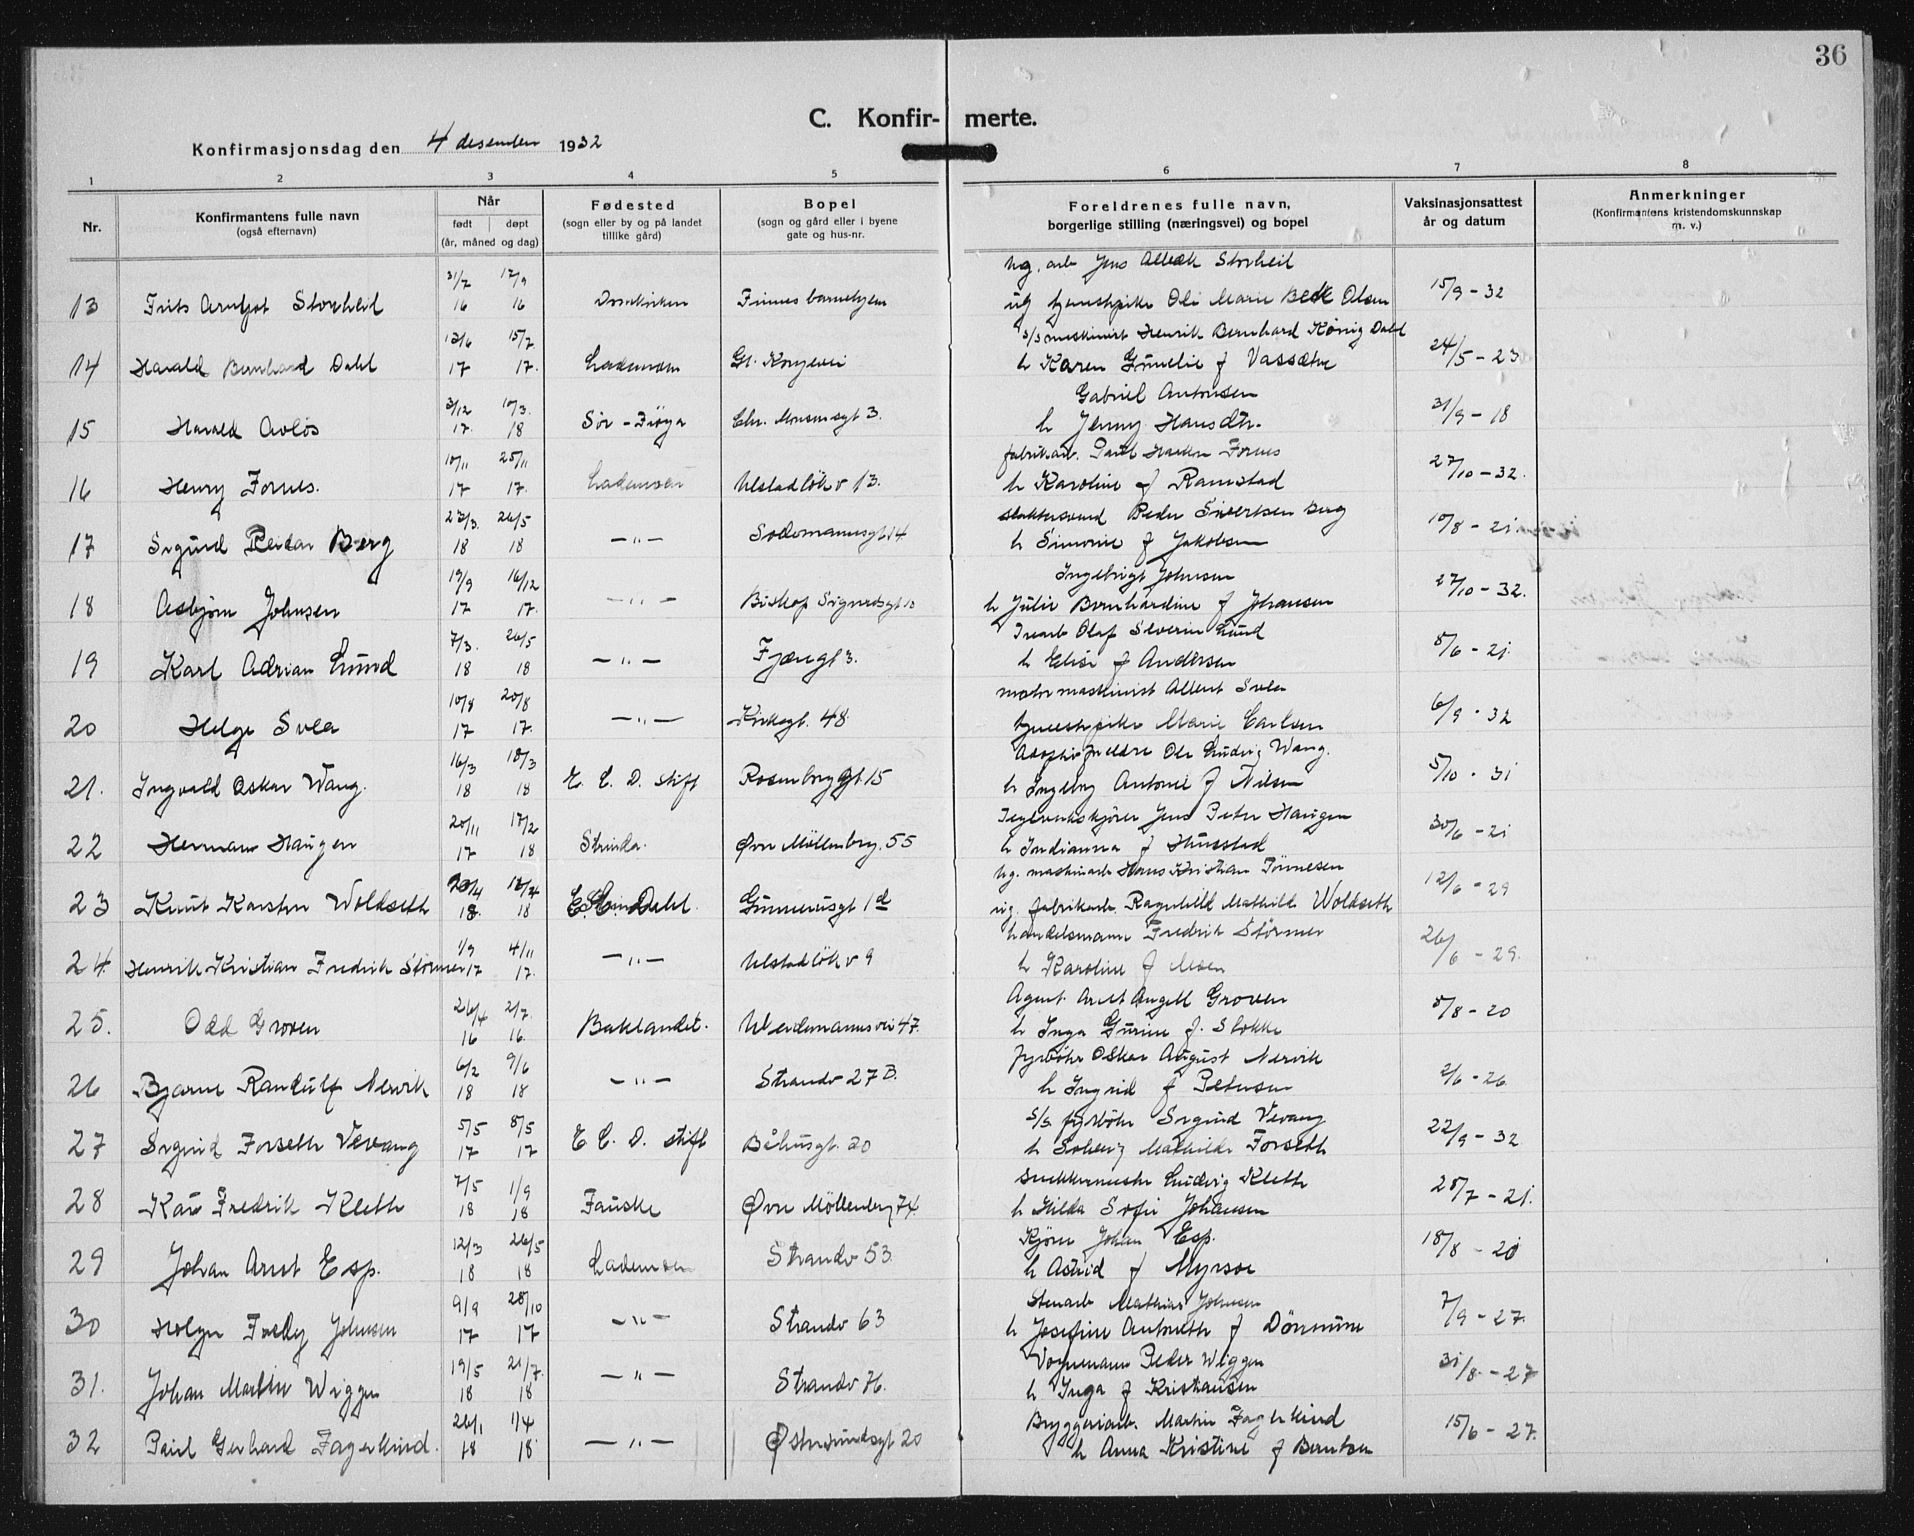 36
C. Konfir- merte.
Konfirmasjonsdag den 4 desember 1932
1 2 3 4 5 6 7 8
Nr.
Konfirmantens fulle navn
(også efternavn)
Når
født døpt
(år, måned og dag)
Fødested
(sogn eller by og på landet
tillike gård)
Bopel
(sogn og gård eller i byene
gate og hus-nr.
Foreldrenes fulle navn,
borgerlige stilling (næringsvei) og bopel
Vaksinasjonsattest
år og datum
Anmerkninger
(Konfirmantens kristendomskunnskap
m. v.)
31/7 17/9 ug. arb Jens Albæk Storheil
13 Frits Arntjot Storheil 16 16 Domkirken Finnes barnehjem ug tjenestepike Oli Marie Beck Olsen 15/9 - 32
13/6 15/7 s/s maskinist Henrik Bernhard König Dahl
14 Harald Bernhard Dahl 17 17. Lademoen Gl. Kongevei h Karen Gunelie f Vassætre 24/5 - 23
3/12 10/3. Gabriel Antonsen
15 Harald Avlös 17. 18 Sör-Fröya Chr. Monsensgt 3. h Jenny Hansdtr. 31/9 - 18
10/11 25/11 fabrikarb. Paul Haakon Fornes
16 Henry Fornes. 17 17. Lademoen Ulstadlökv 13. h Karoline f Ramstad 27/10 - 32.
23/3. 26/5 slaktersvend Peder Sivertsen Berg
17 Sigurd Reidar Berg 18 18 — " — Sodemannsgt 14 h Simonie f Jakobsen 10/8 - 21.
19/9 16/12 Ingebrigt Johnsen
18 Asbjörn Johnsen 17 17. — " — Biskop Sigurdsgt 10 h Julie Bernhardine f Johansen 27/10 - 32.
7/3. 26/5 Olaf Severin Lund
19 Karl Adrian Lund 18 18 — " — Fjæregt 3. h Elise f Andersen 8/6 - 21.
10/8 20/8 motormaskinist Albert Svea
20 Helge Svea 17 17. — " — Kirkegt. 48. tjenestepike Marie Carlsen 6/9 - 32
16/3 18/3 Adoptivforeldre Ole Ludvig Wang.
21. Ingvald Oskar Wang. 18 18 E. C. D. stift Rosenborg gt 15 h Ingeborg Antonie f Nilsen 5/10 - 31
20/11 17/2 Teglverkskjörer Jens Peter Haugen
22 Herman Haugen 17 18 Strinda. Övre Möllenberg. 55 h Indianna f Husstad 30/6 - 21
20/4 13/4 ug. maskinarb Hans Kristian Tönnesen
23 Knut Karsten Woldseth 18. 18 E. C. Dahl. Gunnerusgt 1d ug. fabrikarb. Ragnhild Mathilde Woldseth 12/6 - 29
1/9 4/11 handelsmann Fredrik Störmer
24. Henrik Kristian Fredrik Störmer 17 17. — " — Ulstadlökv 9 h Karoline f Moen 26/6 - 29.
26/4 2/7. Agent. Arnt Angell Groven
25. Odd Groven 16 16. Baklandet. Weidemannsvei 47. h Inga Gurine f. Slokke 5/8 - 20
6/2 9/6 fyrböter Oskar August Nervik
26 Bjarne Randulf Nervik 18 18 — " — Strandv 27 B. h Ingrid f Petersen 2/6 - 26.
5/5 8/5 s/s. fyrböter Sigurd Vevang
27 Sigurd Forseth Vevang 17 17 E C. D. stift Båhusgt. 20 h Solveig Mathilde Forseth 22/9 - 32
7/5 1/9 Snekkermester Ludvig Kleth
28 Kåre Fredrik Kleth 18 18 Fauske Övre Möllenberg 74. h Hilda Sofie Johansen 28/7 - 21.
12/3 26/5 Kjörer Johan Esp.
29 Johan Arnt Esp. 18 18 Lademoen Strandv 53. h Astrid f Myrsve 18/8 - 20
9/9 28/10 Stenarb Mathias Johnsen
30 Holger Johnsen 17 17 — " — Strandv 63 h Josefine Antonette f Dönnum 7/9 - 27.
19/5 21/7. Vognmann Peder Wiggen
31. Johan Martin Wiggen 18 18 — " — Strandv 76. h Inga f Kristiansen 31/8. - 27
26/1 1/4 Bryggeriarb. Martin Fagerlund
32 Paul Gerhard Fagerlund. 18 18. — " — Östersundsgt 20 h Anna Kristine f Berntsen 15/6 - 27.